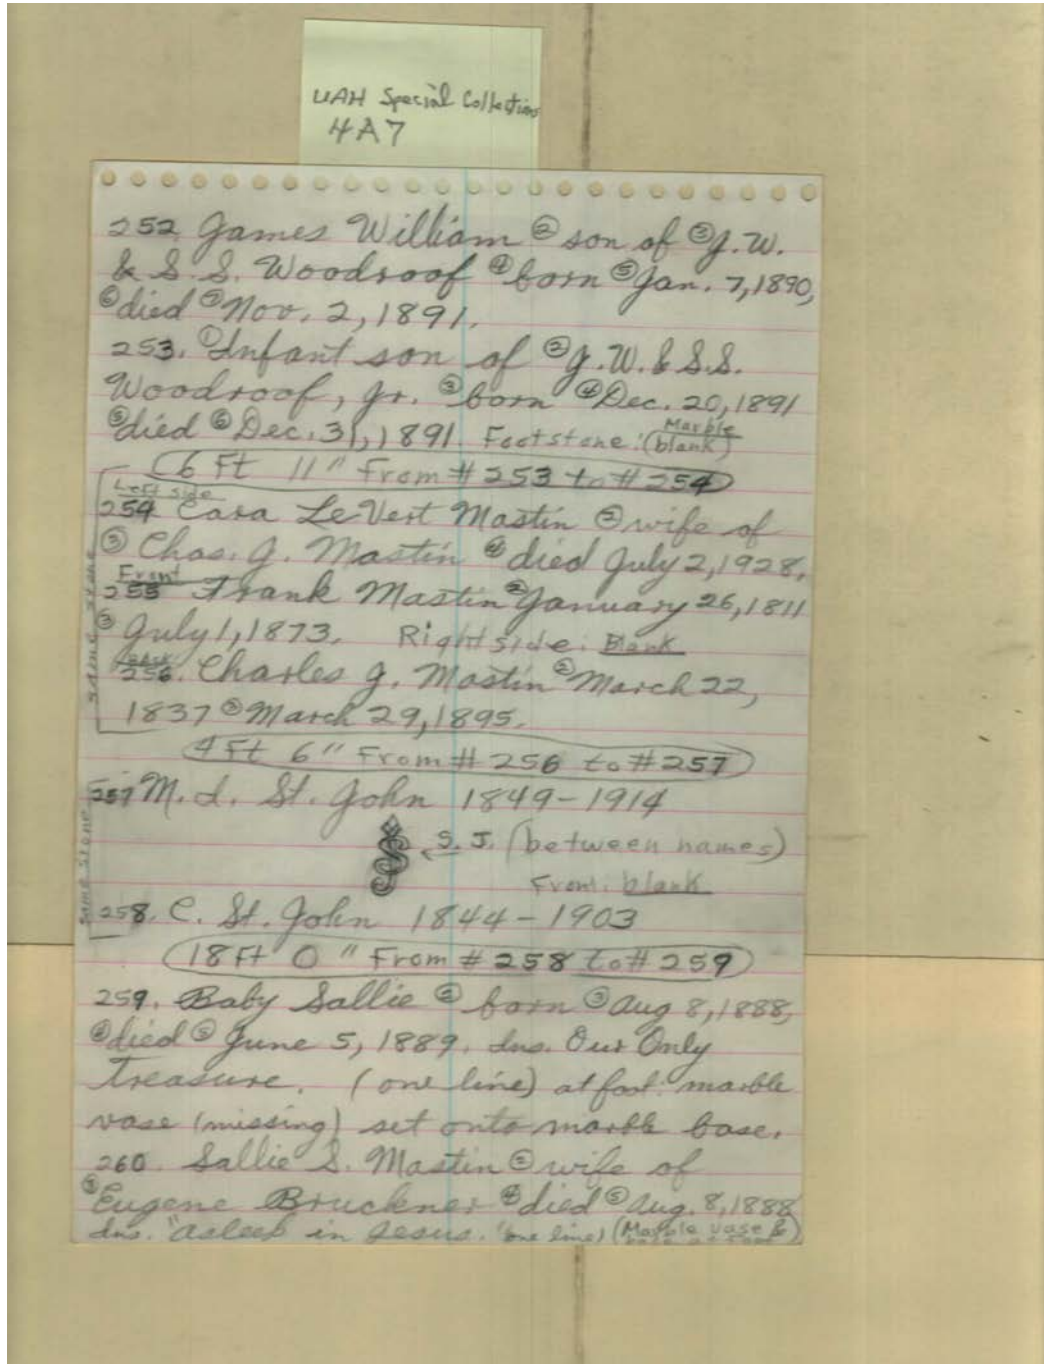 UAH Special Collections
4A7
252. James William ② son of ③ J.W.
& S.S. Woodroof ④ born ⑤ Jan. 7, 1890,
⑥ died ⑦ Nov. 2, 1891.
253. ① Infant son of ② J.W. & S.S.
Woodroof, Jr. ③ born ④ Dec. 20, 1891
⑤ died ⑥ Dec. 31, 1891. Footstone: (Marble
blank)
6 Ft 11" From # 253 to # 254
Left side
254 Cara LeVert Mastin ② wife of
③ Chas. J. Mastin ④ died July 2, 1928.
Front
255 Frank Mastin ② January 26, 1811
③ July 1, 1873. Right side: Blank
Back
256. Charles J. Mastin ② March 22,
1837 ③ March 29, 1895.
same stone
4 Ft 6" From # 256 to # 257
257 M. L. St. John 1849-1914
S. J. (between names)
Front: blank
same stone
258. C. St. John 1844-1903
18 Ft 0" From # 258 to # 259
259. Baby Sallie ② born ③ Aug 8, 1888,
④ died ⑤ June 5, 1889. Ins. Our Only
Treasure. (one line) at foot: marble
vase (missing) set onto marble base.
260. Sallie S. Mastin ② wife of
③ Eugene Bruckner ④ died ⑤ Aug. 8, 1888
Ins. "Asleep in Jesus." (one line) (Marble vase &
base at foot)